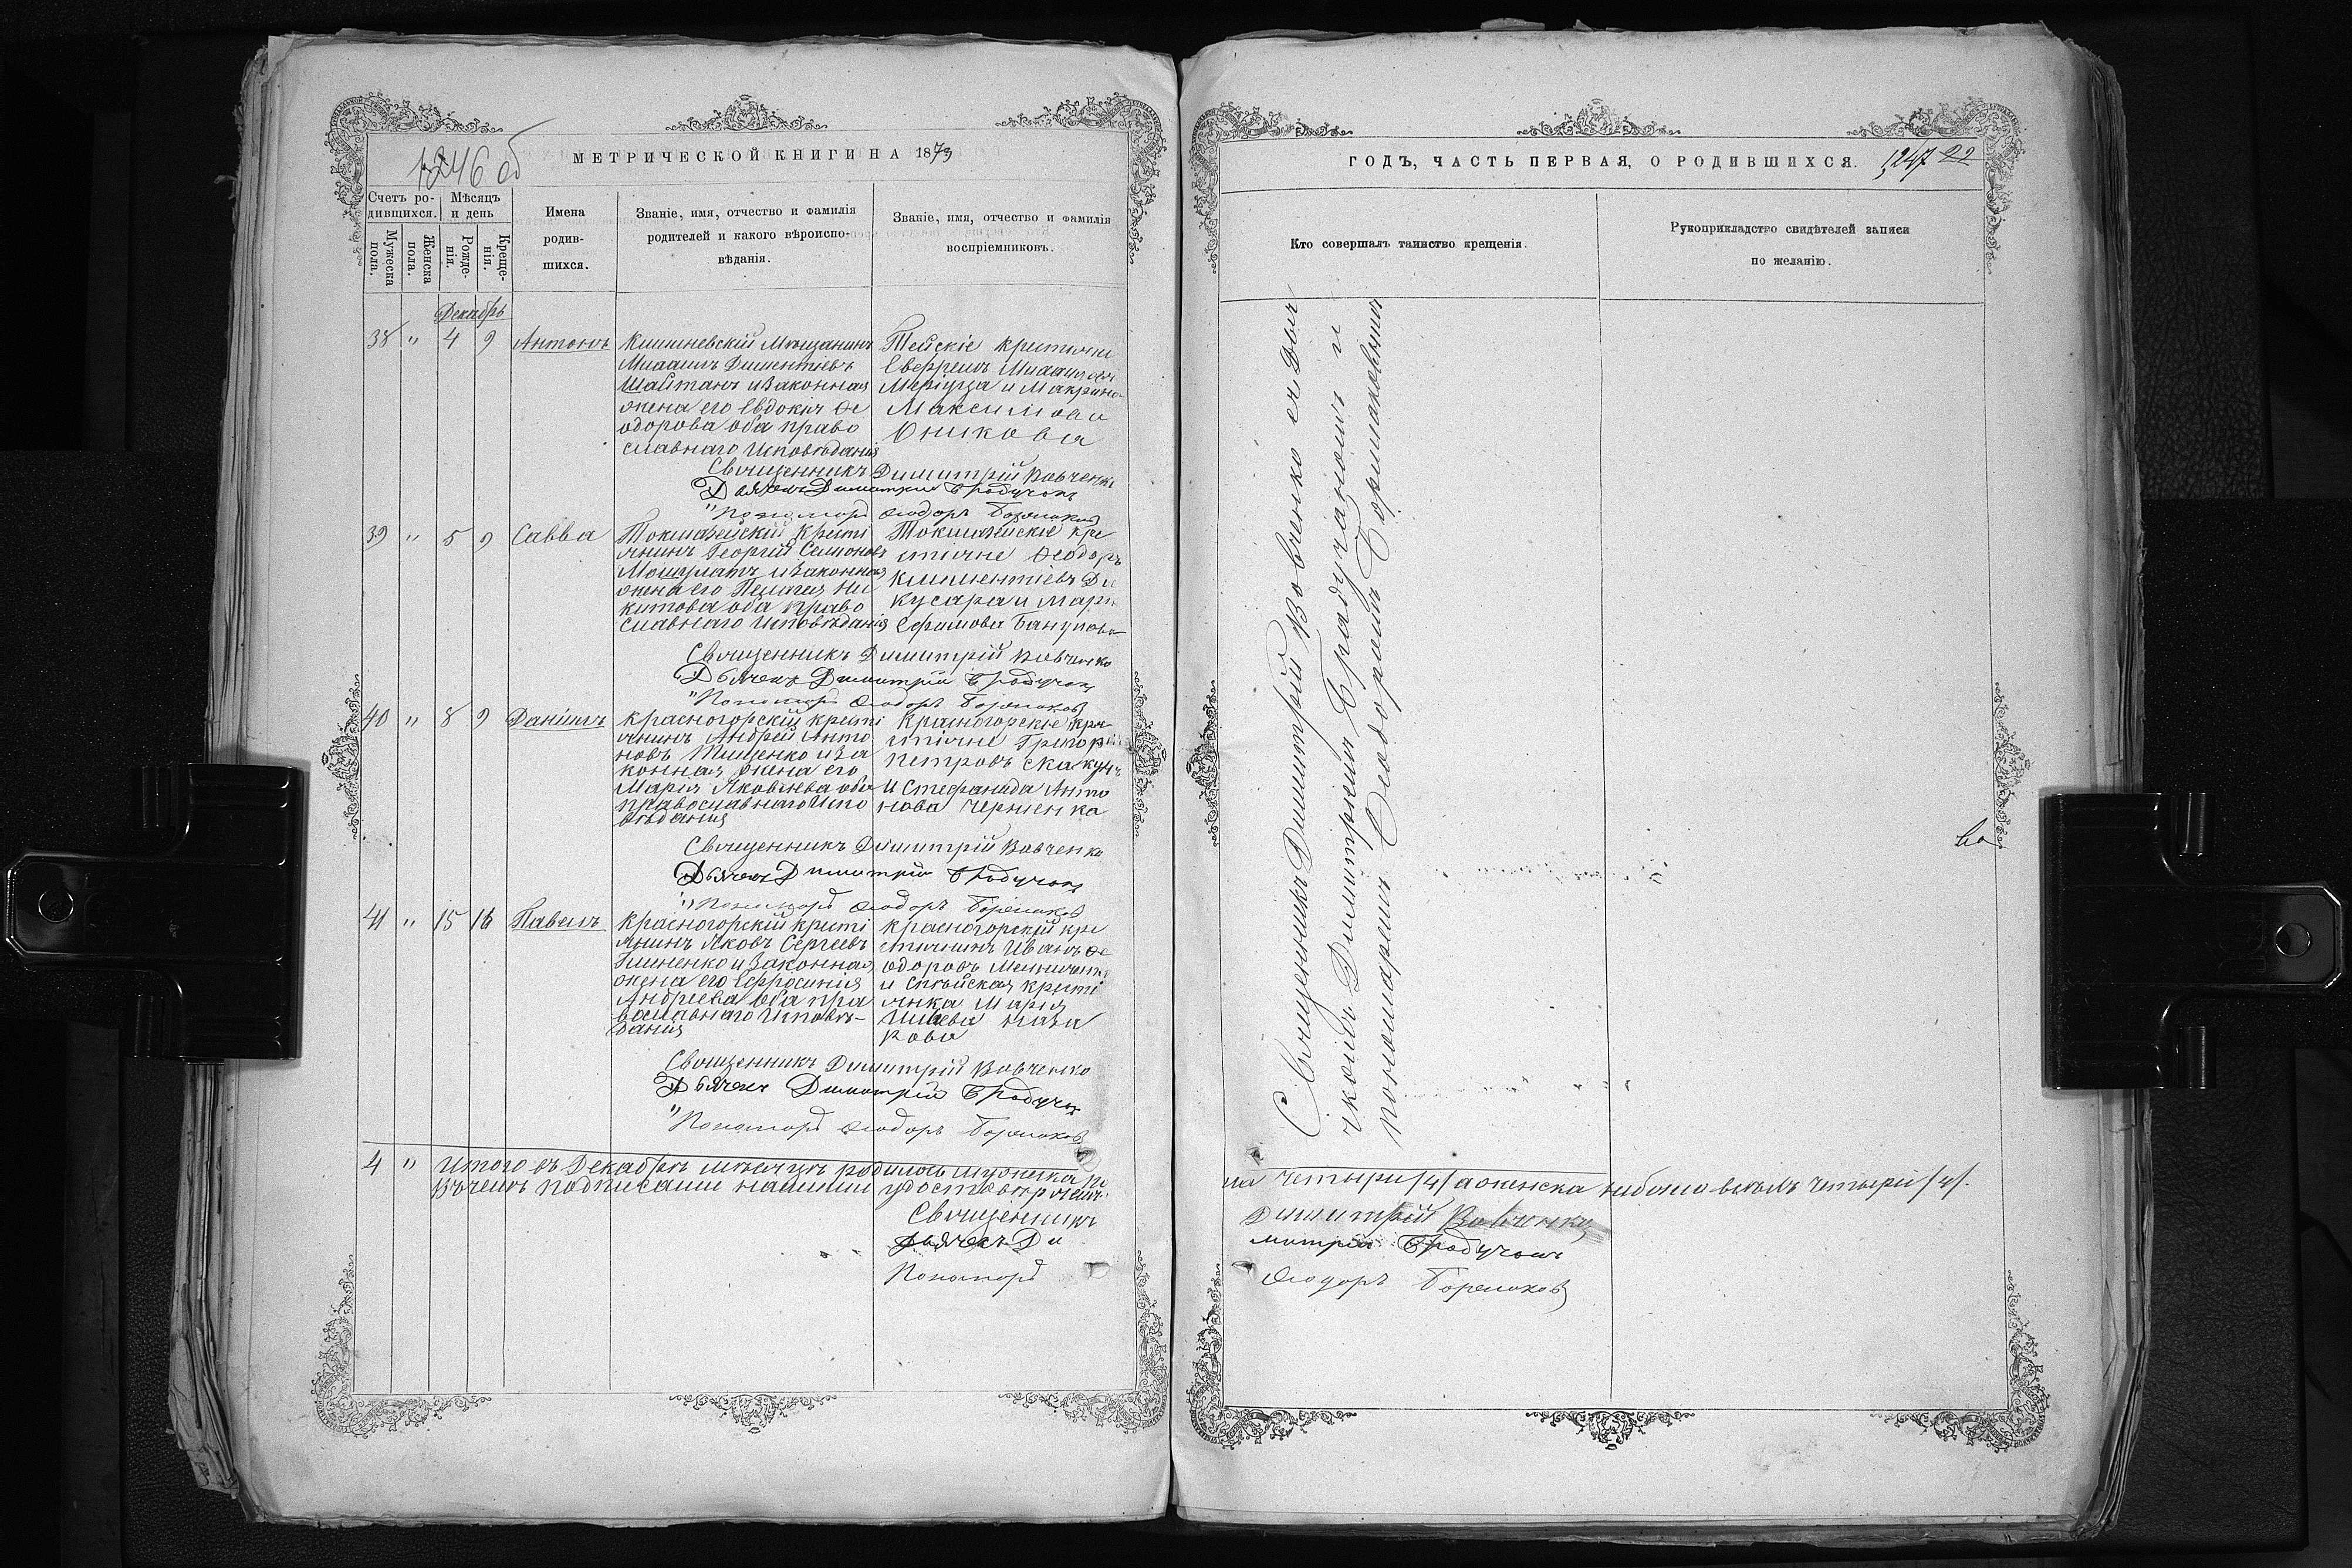 1246 об
МЕТРИЧЕСКОЙ КНИГИ НА 1873
Счетъ ро-
дившихся.
Мѣсяцъ
и день
Мужеска
пола.
Женска
пола.
Рожде-
нія.
Креще-
нія.
Имена
родив-
шихся.
Званіе, имя, отчество и фамилія
родителей и какого вѣроиспо-
вѣданія.
Званіе, имя, отчество и фамилія
воспріемниковъ.
Декабрь
38 " 4 9 Антонъ
Кишиневскій Мѣщанинъ
Михаилъ Дементіевъ
Шайтанъ и законная
жена его Евдокія Ѳе
одорова оба право
славнаго Исповѣданія
Тейскіе крестьяне
Максимова
Священникъ Димитрій Вовченко
Дьячекъ Димитрій Брадучанъ
Пономарь Ѳеодоръ
39 " 5 9 Савва
Токмазейскій крестья
нинъ Георгій Семіоновъ
и законная
жена его Пелагея Ни
китова оба право
славнаго Исповѣданія
Токмазейскіе кре
стьяне Ѳеодоръ
Климентіевъ
кусара и Марія
Ефимова
Священникъ Димитрій Вовченко
Дьячекъ Димитрій Брадучанъ
Пономарь Ѳеодоръ
40 " 8 9 Даніилъ
Красногорскій крестья
нинъ Андрей Анто
новъ Тищенко и за
конная жена его
Марія Яковлева оба
православнаго Испо
вѣданія
Красногорскіе кре
стьяне Григорій
Петровъ Скакунъ
и Стефанида Анто
нова Черненка
Священникъ Димитрій Вовченко
Дьячекъ Димитрій Брадучанъ
Пономарь Ѳеодоръ
41 " 15 16 Павелъ
Красногорскій крестья
нинъ Яковъ Сергеевъ
и законная
жена его Ефросинія
Андреева оба пра
вославнаго Исповѣ-
данія
Красногорскій кре
стьянинъ Иванъ Ѳе
одоровъ
и Спѣйская крестья
янка Марія
каза
кова
Священникъ Димитрій Вовченко
Дьячекъ Димитрій Брадучанъ
Пономарь Ѳеодоръ
4 " Итого въ Декабрѣ мѣсяцѣ родилось мужеска по
Въ чемъ подписами нашими удостовѣряемъ
Священникъ
Дьячекъ Ди
Пономарь
ГОДЪ, ЧАСТЬ ПЕРВАЯ, О РОДИВШИХСЯ.
1247 22
Кто совершалъ таинство крещенія.
Рукоприкладство свидѣтелей записи
по желанію.
Священникъ Димитрій Вовченко съ дья
чкомъ Димитріемъ Брадучаномъ и
пономаремъ Ѳеодоромъ
во
ла четыри /4/ а женска небыло всѣхъ четыри /4/.
Димитрій Вовченко
митрій Брадучанъ
Ѳеодоръ